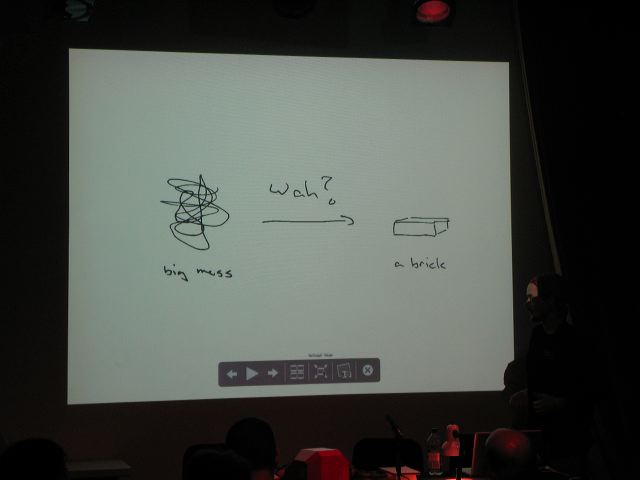 Wah?
big mess
a brick